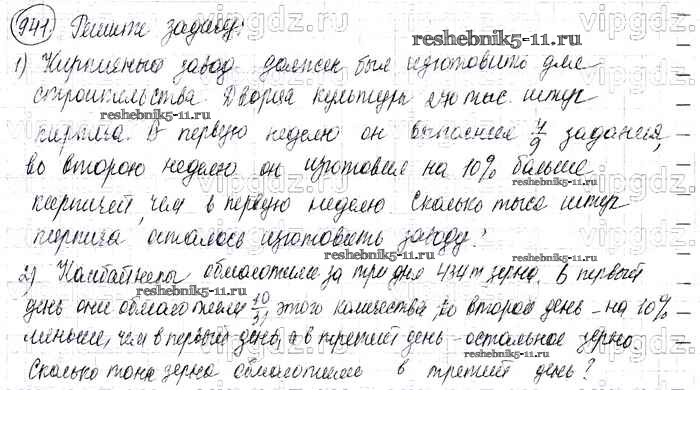 941. Решите задачу:
1) Кирпичный завод должен был изготовить для
строительства Дворца культуры 270 тыс. штук
кирпича. В первую неделю он выполнил 4/9 задания,
во вторую неделю он изготовил на 10% больше
кирпичей, чем в первую неделю. Сколько тысяч штук
кирпича осталось изготовить заводу?
2) Комбайнеры обмолотили за три дня 434 т зерна. В первый
день они обмолотили 10/ этого количества во второй день - на 10%
меньше, чем в первый день, а в третий день - остальное зерно.
Сколько тонн зерна обмолотили в третий день?
reshebnik5-11.ru
reshebnik5-11.ru
reshebnik5-11.ru
reshebnik5-11.ru
reshebnik5-11.ru
reshebnik5-11.ru
vipgdz.ru
vipgdz.ru
vipgdz.ru